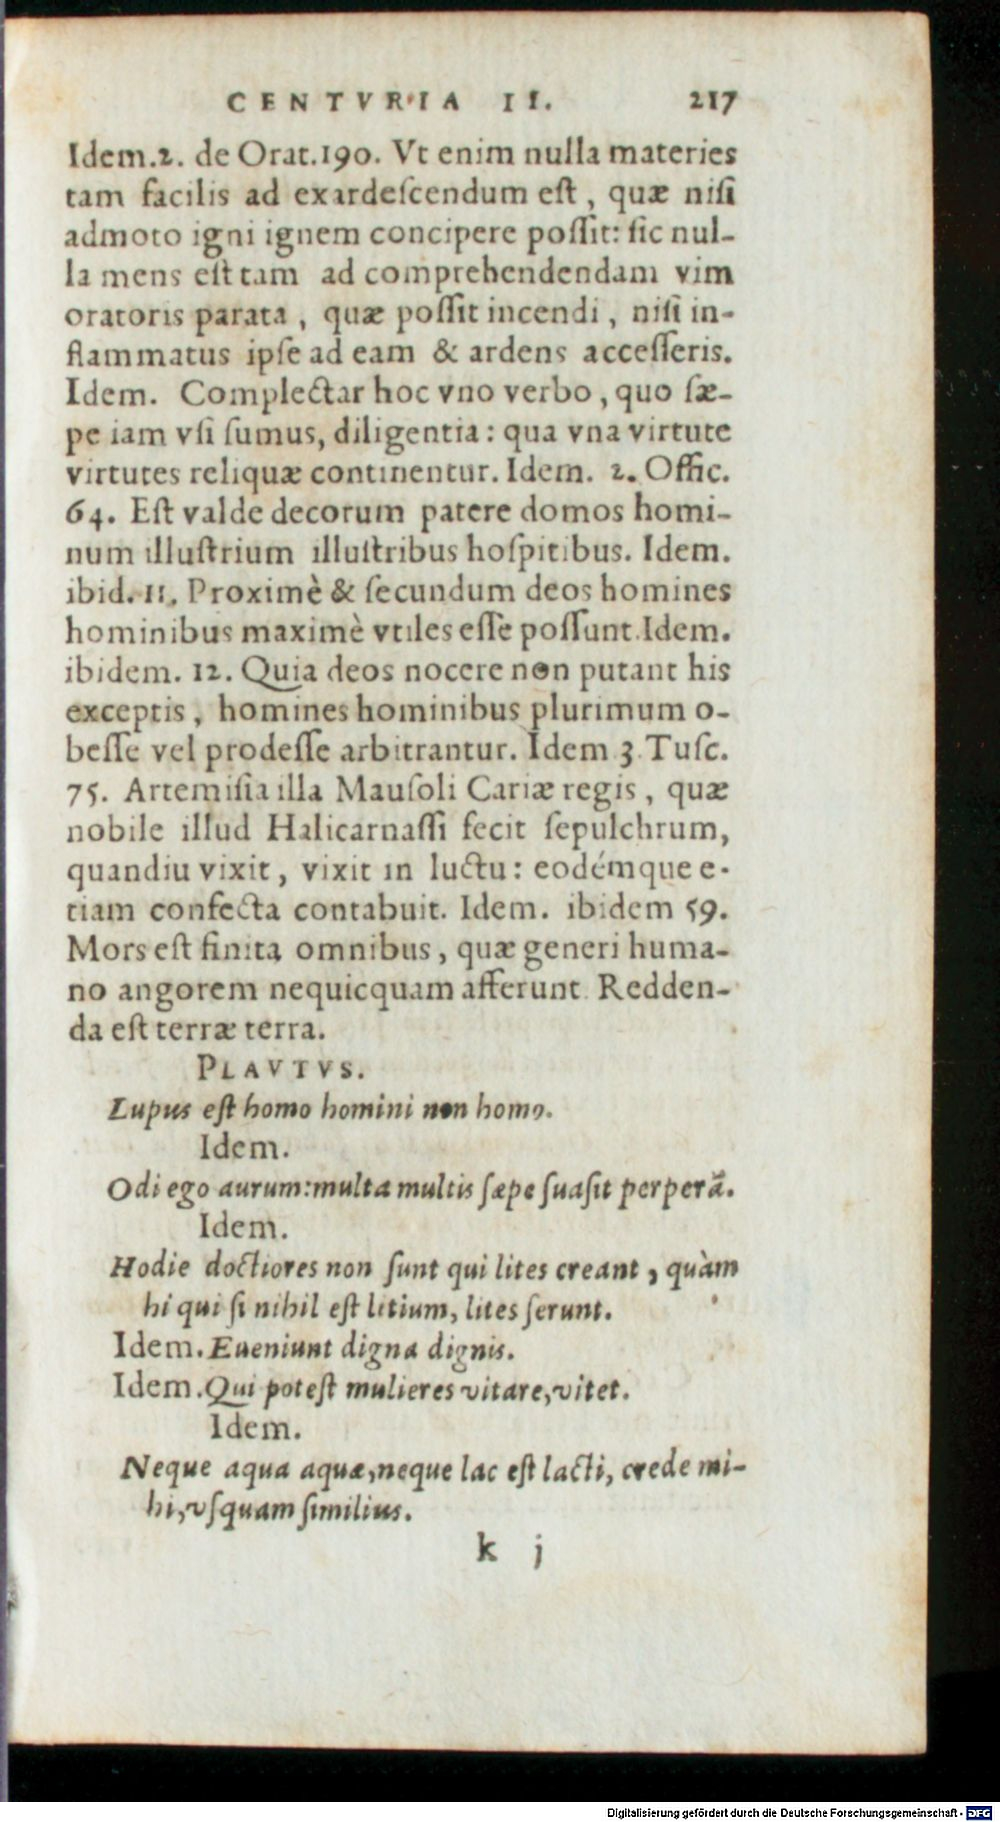 CENTVRIA II. 217
Idem.2. de Orat.190. Vt enim nulla materies
tam facilis ad exardeſcendum eſt, quæ niſi
admoto igni ignem concipere poſſit: ſic nul-
la mens eſt tam ad comprehendendam vim
oratoris parata, quæ poſſit incendi, niſi in-
flammatus ipſe ad eam & ardens acceſſeris.
Idem. Complectar hoc vno verbo, quo ſæ-
pe iam vſi ſumus, diligentia: qua vna virtute
virtutes reliquæ continentur. Idem. 2. Offic.
64. Eſt valde decorum patere domos homi-
num illuſtrium illuſtribus hoſpitibus. Idem.
ibid. 11. Proximè & ſecundum deos homines
hominibus maximè vtiles eſſe poſſunt. Idem.
ibidem. 12. Quia deos nocere non putant his
exceptis, homines hominibus plurimum o-
beſſe vel prodeſſe arbitrantur. Idem 3. Tuſc.
75. Artemiſia illa Mauſoli Cariæ regis, quæ
nobile illud Halicarnaſſi fecit ſepulchrum,
quandiu vixit, vixit in luctu: eodémque e-
tiam confecta contabuit. Idem. ibidem 59.
Mors eſt finita omnibus, quæ generi huma-
no angorem nequicquam afferunt. Redden-
da eſt terræ terra.
PLAVTVS.
Lupus eſt homo homini non homo.
Idem.
Odi ego aurum: multa multis ſæpe ſuaſit perperã.
Idem.
Hodie doctiores non ſunt qui lites creant, quàm
hi qui ſi nihil eſt litium, lites ſerunt.
Idem. Eueniunt digna dignis.
Idem. Qui poteſt mulieres vitare, vitet.
Idem.
Neque aqua aquæ, neque lac eſt lacti, crede mi-
hi, vſquam ſimilius.
k j
Digitalisierung gefördert durch die Deutsche Forschungsgemeinschaft - DFG